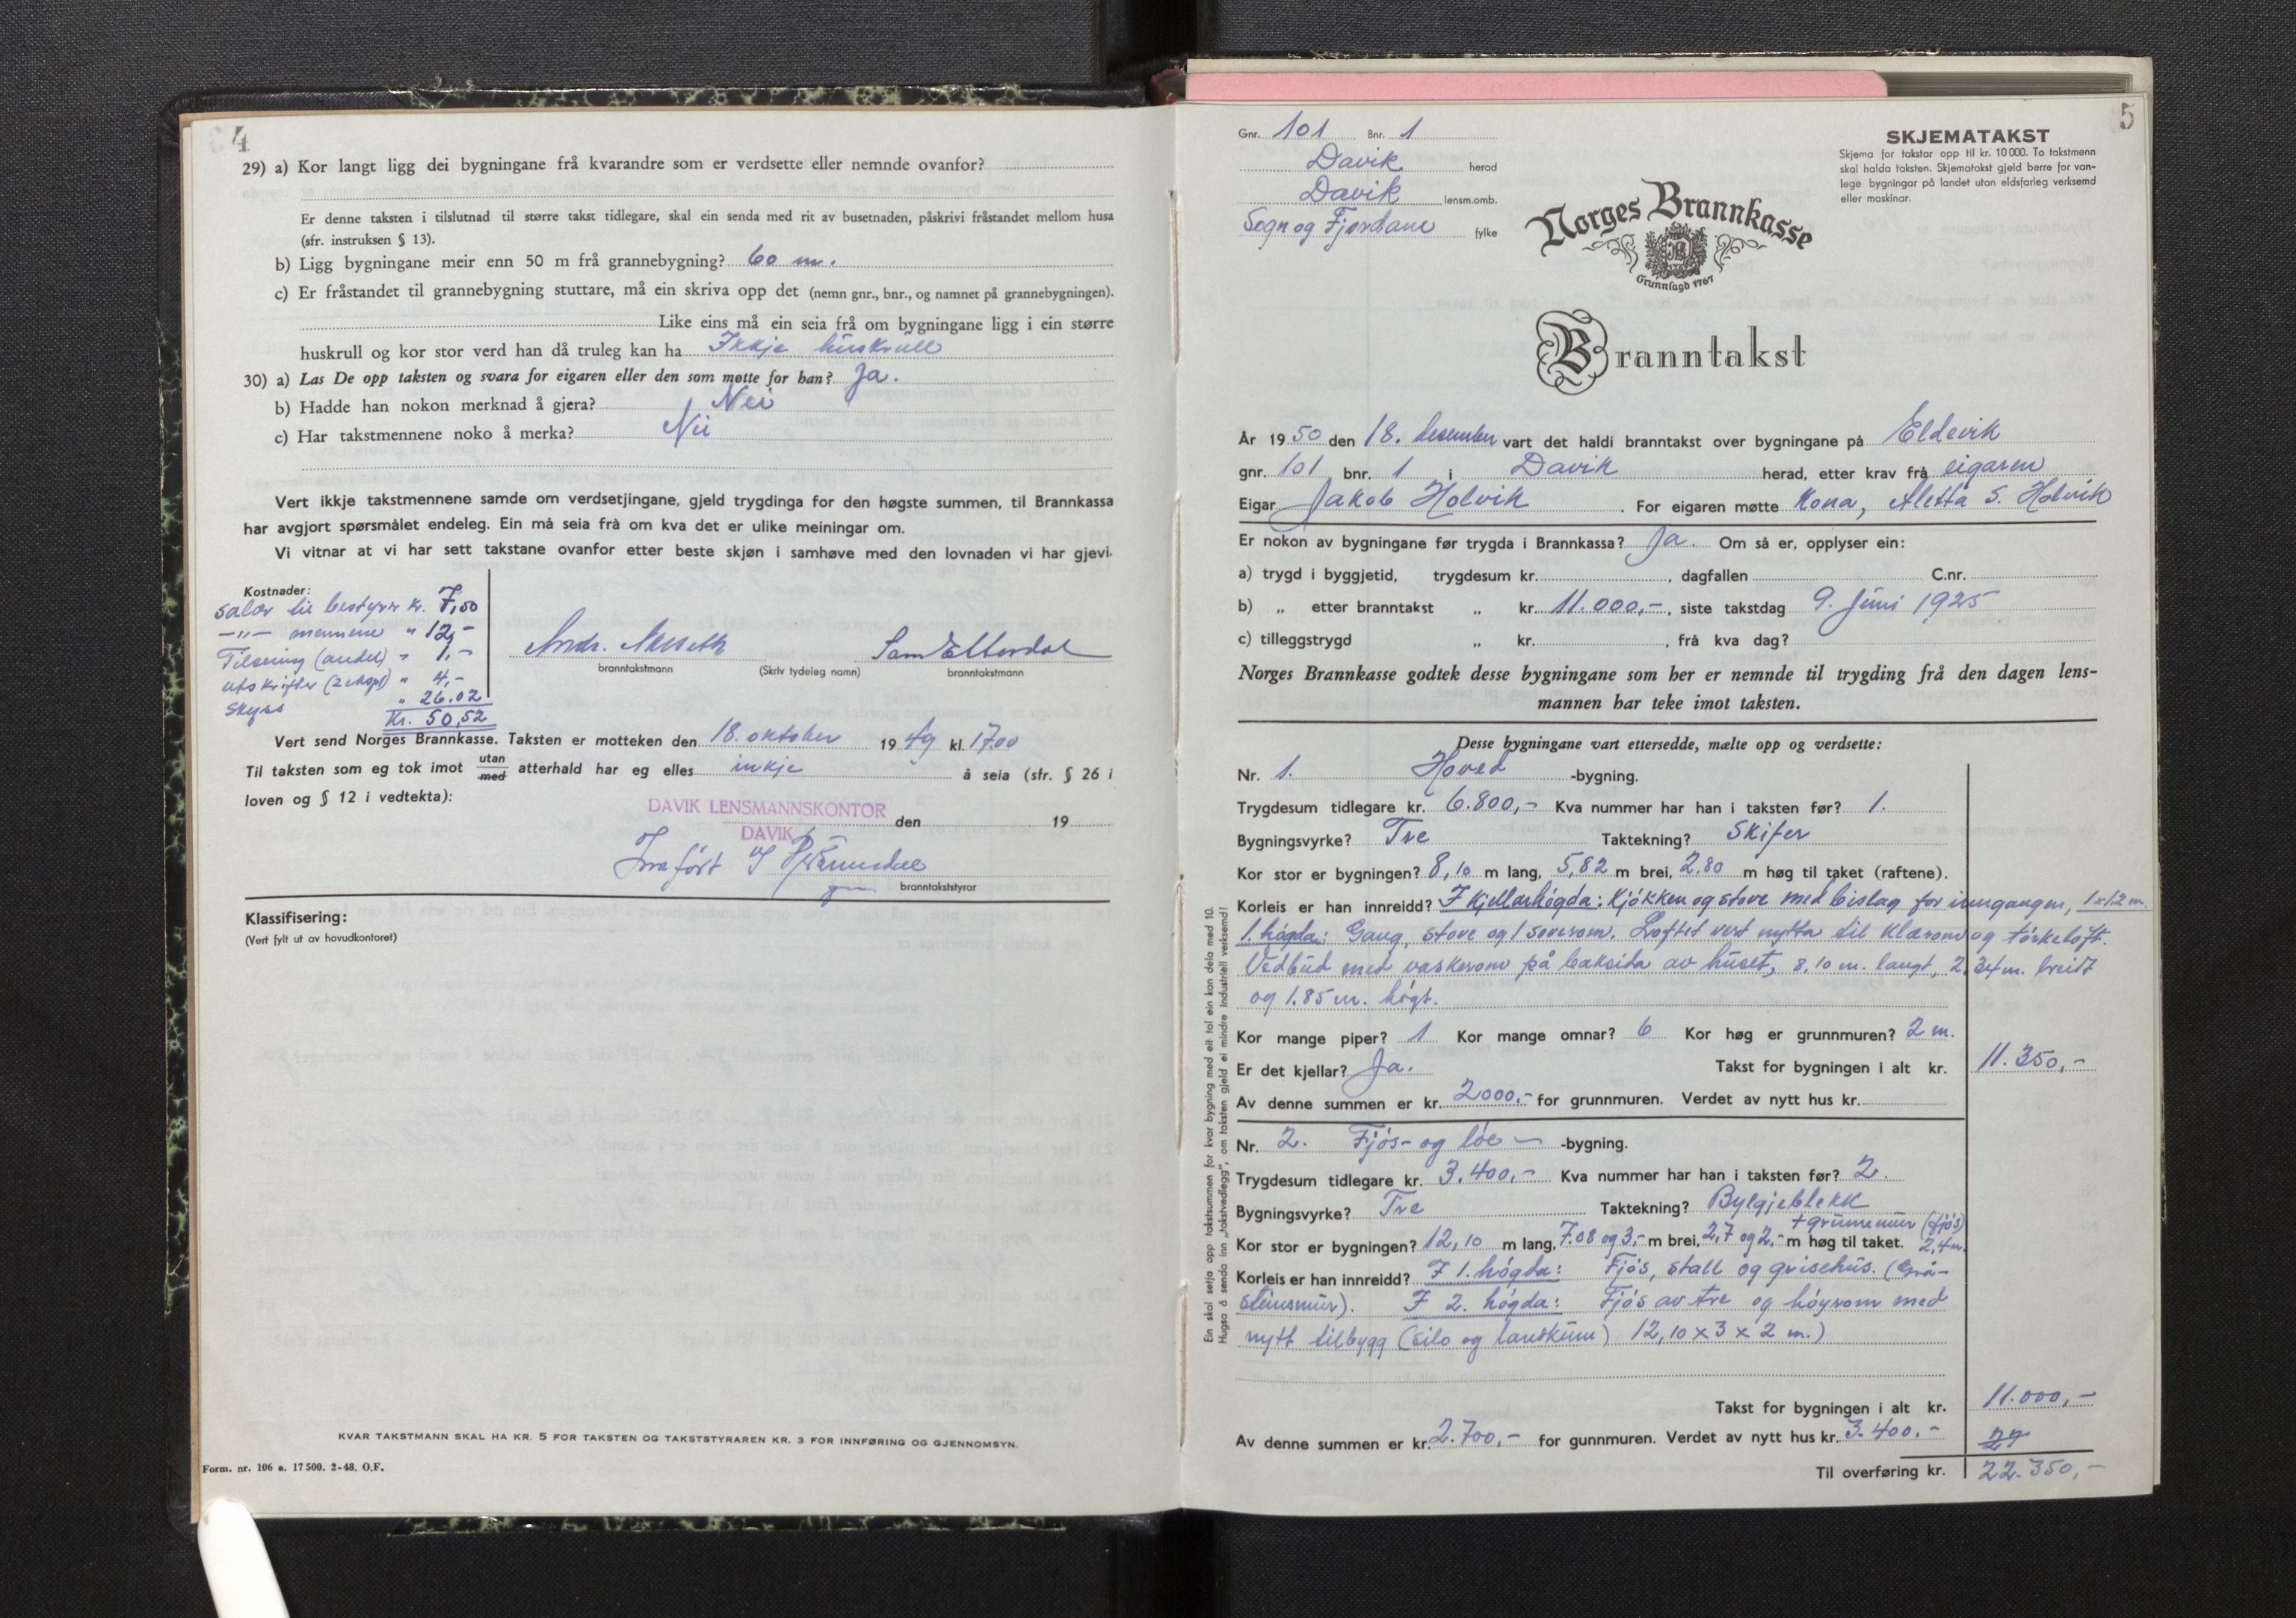 4
29) a) Kor langt ligg dei bygningane frå kvarandre som er verdsette eller nemnde ovanfor?
Er denne taksten i tilslutnad til større takst tidlegare, skal ein senda med rit av busetnaden, påskrivi fråstandet mellom husa
(sfr. instruksen § 13).
b) Ligg bygningane meir enn 50 m frå grannebygning? 60 m.
c) Er fråstandet til grannebygning stuttare, må ein skriva opp det (nemn gnr., bnr., og namnet på grannebygningen).
Like eins må ein seia frå om bygningane ligg i ein større
huskrull og kor stor verd han då truleg kan ha Ikkje huskrull
30) a) Las De opp taksten og svara for eigaren eller den som møtte for han? Ja.
b) Hadde han nokon merknad å gjera? Nei
c) Har takstmennene noko å merka? Nei
Vert ikkje takstmennene samde om verdsetjingane, gjeld trygdinga for den høgste summen, til Brannkassa
har avgjort spørsmålet endeleg. Ein må seia frå om kva det er ulike meiningar om.
Vi vitnar at vi har sett takstane ovanfor etter beste skjøn i samhøve med den lovnaden vi har gjevi.
Kostnader:
salær til bestyrer kr. 7,50
—"— mennene " 12,-
Tilsening (andel) " 1,-
utskrifter (2 ekspl) " 4,-
Skyss " 26.02
Kr. 50,52
Andr. Aaseth
branntakstmann (Skriv tydeleg namn) branntakstmann
Vert send Norges Brannkasse. Taksten er motteken den 18. oktober 1949 kl. 17.00
Til taksten som eg tok imot utan/med atterhald har eg elles inkje å seia (sfr. § 26 i
loven og § 12 i vedtekta):
DAVIK LENSMANNSKONTOR den 19
DAVIK
Innført
branntakststyrar
Klassifisering:
(Vert fylt ut av hovudkontoret)
KVAR TAKSTMANN SKAL HA KR. 5 FOR TAKSTEN OG TAKSTSTYRAREN KR. 3 FOR INNFØRING OG GJENNOMSYN.
Form. nr. 106 a. 17 500. 2-48. O.F.
5
Gnr. 101 Bnr. 1
Davik herad
Davik lensm.omb.
Sogn og Fjordane fylke
SKJEMATAKST
Skjema for takstar opp til kr. 10 000. To takstmenn
skal halda taksten. Skjematakst gjeld berre for van-
lege bygningar på landet utan eldsfarleg verksemd
eller maskinar.
Norges Brannkasse
Grunnlagd 1767
Branntakst
År 1950 den 18. desember vart det haldi branntakst over bygningane på Eldevik
gnr. 101 bnr. 1 i Davik herad, etter krav frå eigaren
Eigar Jakob Holvik. For eigaren møtte Kona, Aletta S. Holvik
Er nokon av bygningane før trygda i Brannkassa? Ja. Om så er, opplyser ein:
a) trygd i byggjetid, trygdesum kr. , dagfallen C.nr.
b) „ etter branntakst „ kr. 11.000,-, siste takstdag 9. Juni 1925
c) tilleggstrygd „ kr. , frå kva dag?
Norges Brannkasse godtek desse bygningane som her er nemnde til trygding frå den dagen lens-
mannen har teke imot taksten.
Desse bygningane vart ettersedde, mælte opp og verdsette:
Nr. 1. Hoved -bygning.
Trygdesum tidlegare kr. 6.800,- Kva nummer har han i taksten før? 1.
Bygningsvyrke? Tre Taktekning? Skifer
Kor stor er bygningen? 8,10 m lang, 5,82 m brei, 2,80 m høg til taket (raftene).
Korleis er han innreidd? I kjellarhøgda: Kjøkken og stove med bislag for inngangen, 1x1.2 m.
1. høgda: Gang, stove og 1 soverom. Loftet vert nytta til klærom og tørkeloft.
Vedbud med vaskerom på baksida av huset, 8,10 m. langt, 2,34 m. breidt
og 1.85 m. høgt.
Kor mange piper? 1 Kor mange omnar? 6 Kor høg er grunnmuren? 2 m.
Er det kjellar? Ja. Takst for bygningen i alt kr. 11.350,-
Av denne summen er kr. 2000,- for grunnmuren. Verdet av nytt hus kr.
Nr. 2. Fjøs- og løe- -bygning.
Trygdesum tidlegare kr. 3.400,- Kva nummer har han i taksten før? 2.
Bygningsvyrke? Tre Taktekning? Bylgjeblekk
+ grunnmur (fjøs)
Kor stor er bygningen? 12,10 m lang, 7.08 og 3,- m brei, 2,7 og 2,- m høg til taket. 2,4 m.
Korleis er han innreidd? I 1. høgda: Fjøs, stall og grisehus. (Grå-
steinsmur). I 2. høgda: Fjøs av tre og høyrom med
nytt tilbygg (silo og landkum) 12,10 x 3 x 2 m.)
Takst for bygningen i alt kr. 11.000,-
Av denne summen er kr. 2.700,- for gunnmuren. Verdet av nytt hus kr. 3.400.-
Til overføring kr. 22.350,-
Ein skal setja opp takstsummen for kvar bygning med eit tal ein kan dela med 10.
Hugsa å senda inn „takstvedlegg", om taksten gjeld ei mindre industriell verksemd!